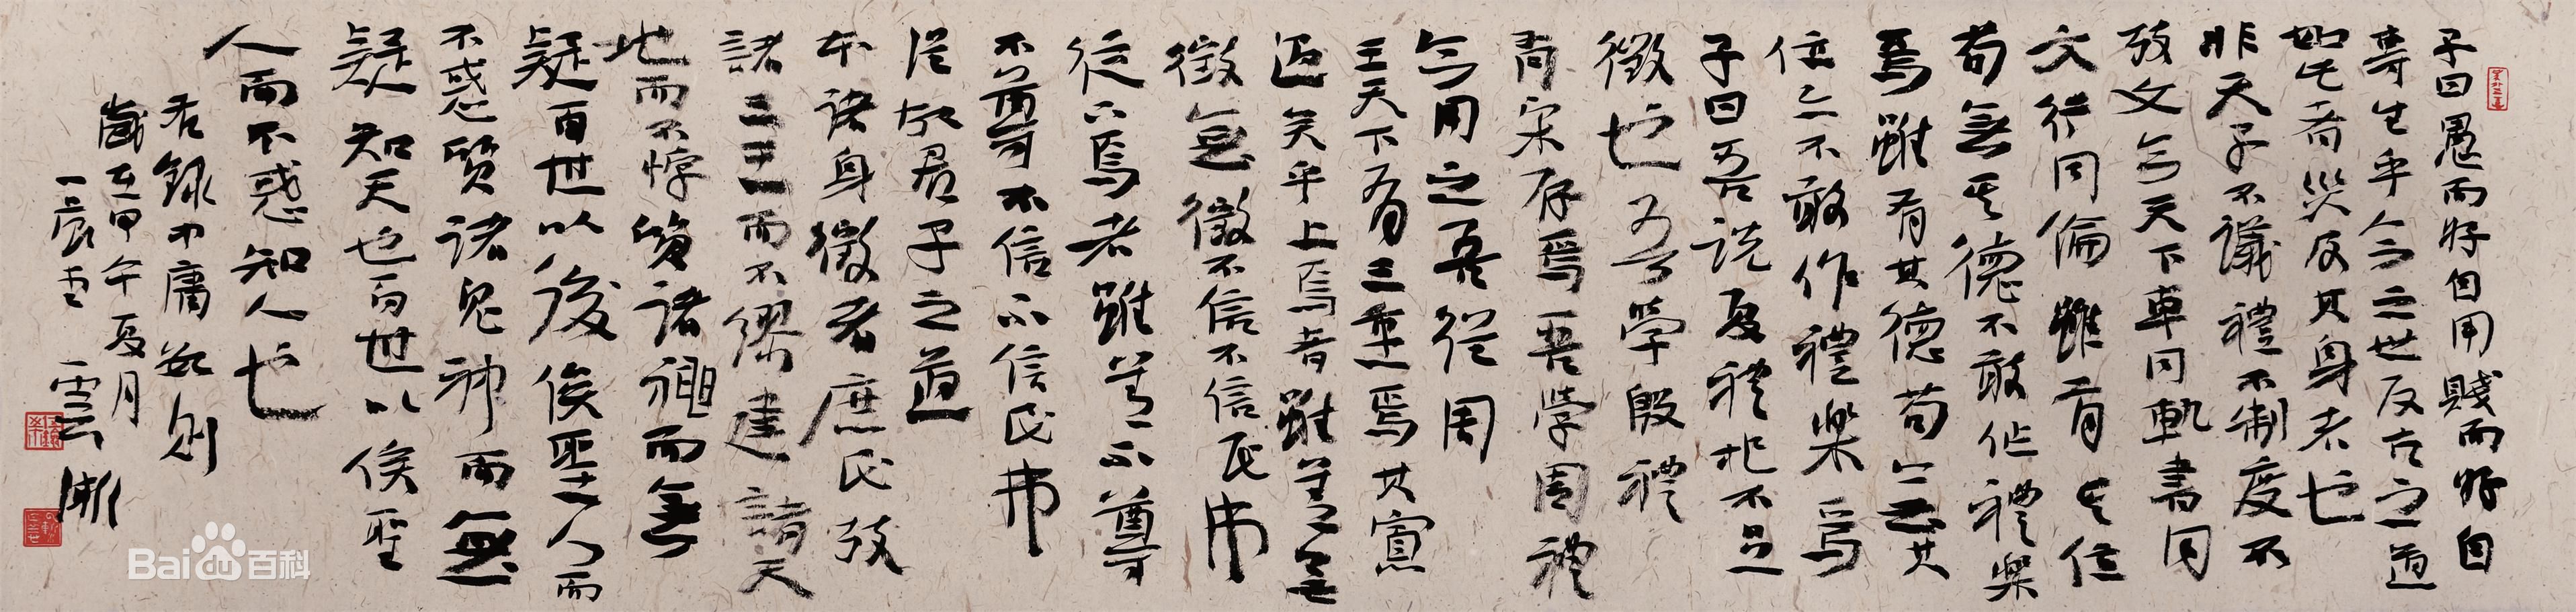 子曰愚而好自用賤而好自
專生乎今之世反古之道
如此者災及其身者也
非天子不議禮不制度不
攷文今天下車同軌書同
文行同倫雖有其位
苟無其德不敢作禮樂
焉雖有其德苟無其
位亦不敢作禮樂焉
子曰吾説夏禮杞不足
徵也吾學殷禮
有宋存焉吾學周禮
今用之吾從周
王天下有三重焉其寡
過矣乎上焉者雖善無
徵無徵不信不信民弗
從下焉者雖善不尊
不尊不信不信民弗
從故君子之道
本諸身徵者庶民攷
諸三王而不繆建諸天
地而不悖質諸而無
疑百世以後俟聖人而
不惑質諸鬼神而無
疑知天也百世以俟聖
人而不惑知人也
右錄中庸數則
歲在甲午夏月
一 雲
Bai 百科